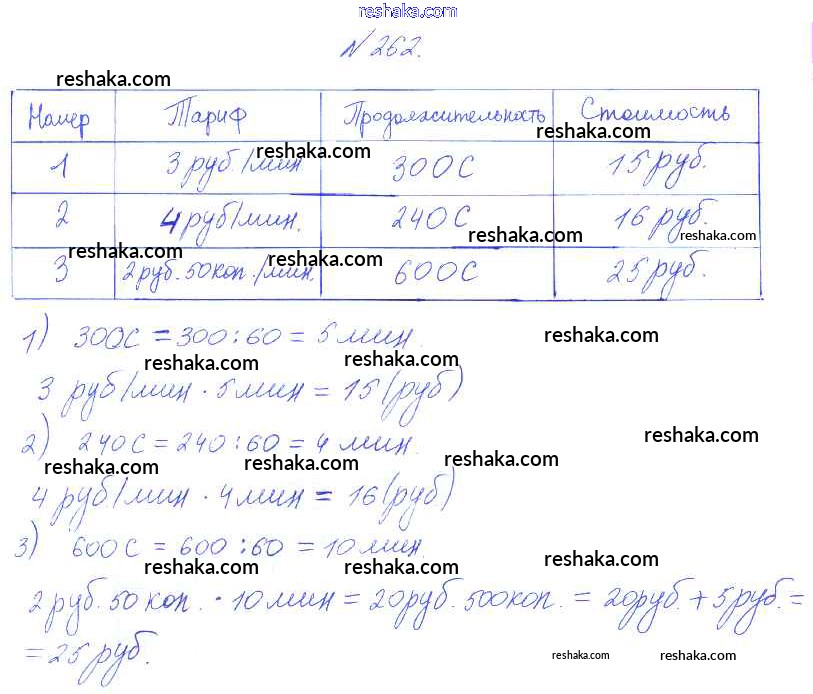 reshaka.com
N 262.
reshaka.com
Номер Тариф Продолжительность Стоимость
reshaka.com
reshaka.com
1 3 руб./мин 300 С 15 руб.
2 4 руб/мин. 240 С 16 руб.
reshaka.com reshaka.com
reshaka.com
3 2 руб. 50 коп./мин. 600 С 25 руб.
reshaka.com
1) 300 С = 300 : 60 = 5 мин.
reshaka.com
reshaka.com reshaka.com
3 руб/мин · 5 мин = 15 (руб)
2) 240 С = 240 : 60 = 4 мин.
reshaka.com
reshaka.com reshaka.com reshaka.com
4 руб/мин · 4 мин = 16 (руб)
3) 600 С = 600 : 60 = 10 мин.
reshaka.com reshaka.com reshaka.com
2 руб. 50 коп. · 10 мин = 20 руб. 500 коп. = 20 руб. + 5 руб. =
= 25 руб.
reshaka.com reshaka.com